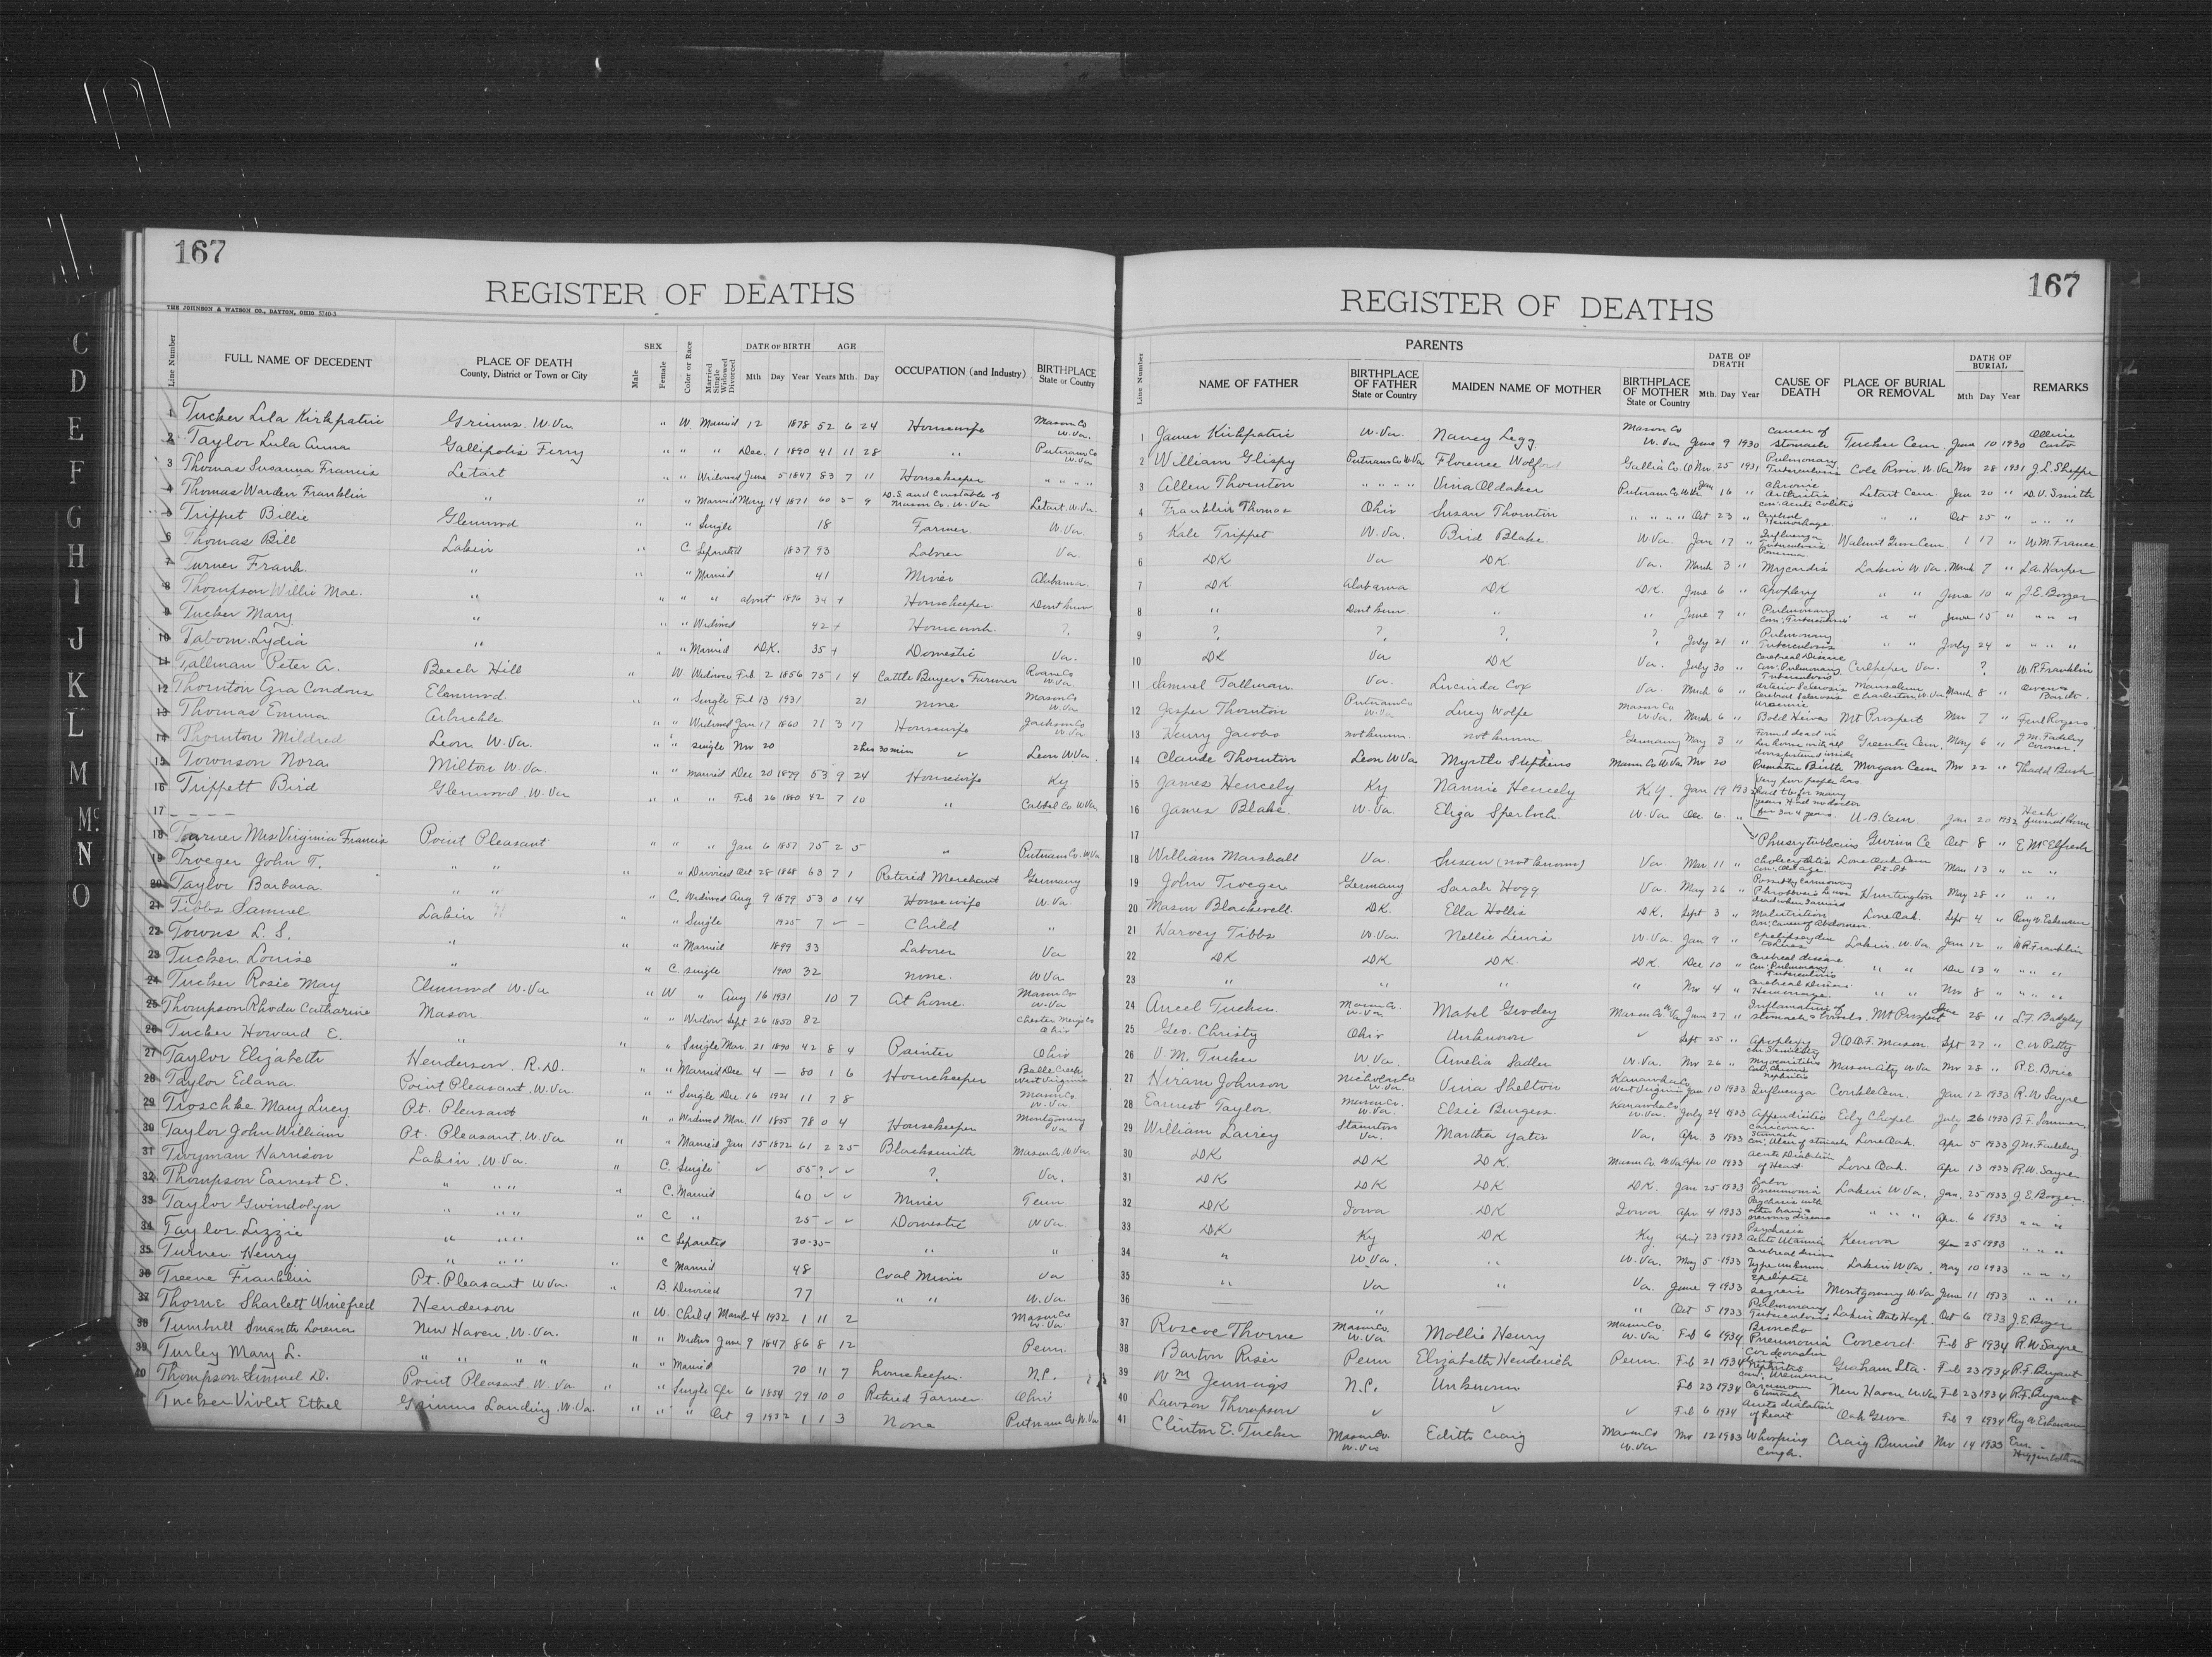 167
REGISTER OF DEATHS
THE JOHNSON & WATSON CO., DAYTON, OHIO
Line Number
FULL NAME OF DECEDENT
PLACE OF DEATH
County, District or Town or City
SEX
Male
Female
Color or Race
Married Single Widowed Divorced
DATE OF BIRTH
Mth Day Year
AGE
Years Mth. Day
OCCUPATION (and Industry)
BIRTHPLACE
State or Country
1 Tucker Lila Kirkpatric Grimms W.Va " W Married 12 1878 52 6 24 Housewife Mason Co W.Va.
2 Taylor Lula Anna Gallipolis Ferry " " " Dec. 1 1890 41 11 28 " Putnam Co W.Va
3 Thomas Susanna Francis Letart " " Widowed June 5 1847 83 7 11 Housekeeper " " " "
4 Thomas Warden Franklin " " " Married May 14 1871 60 5 9 D.S. and Constable of Mason Co. W.Va Letart W.Va.
5 Trippet Billie Glenwood " " Single 18 Farmer W.Va.
6 Thomas Bill Lakin " C. Separated 1837 93 Laborer Va
7 Turner Frank " " " Married 41 Miner Alabama
8 Thompson Willie Mae. " " " " about 1896 34 + Housekeeper Dont know
9 Tucker Mary " " " Widowed 42 + Housework ?
10 Taborn Lydia " " " Married D.K. 35 + Domestic Va.
11 Tallman Peter A. Beech Hill " W Widower Feb 2 1856 75 1 4 Cattle Buyer & Farmer Roane Co W.Va
12 Thornton Ezra Condons Elmwood " " Single Feb 13 1931 21 none Mason Co W.Va
13 Thomas Emma Arbuckle " " Widowed Jan 17 1860 71 3 17 Housewife Jackson Co W.Va
14 Thornton Mildred Leon W.Va. " " single Nov 20 2 hrs 30 min ✓ Leon W.Va.
15 Townson Nora Milton W.Va. " " married Dec 20 1879 53 9 24 Housewife Ky
16 Trippett Bird Glenwood, W.Va " " " Feb 26 1890 42 7 10 " Cabbal Co W.Va.
17 - - - - -
18 Turner Mrs Virginia Francis Point Pleasant " " " Jan 6 1857 75 2 5 " Putnam Co. W.Va
19 Troeger John T. " " " " Divorced Oct 28 1868 63 7 1 Retired Merchant Germany
20 Taylor Barbara " " " C. Widowed Aug 9 1879 53 0 14 Housewife W.Va.
21 Tibbs Samuel Lakin " " Single 1925 7 – – Child "
22 Towns L. S. " " " Married 1899 33 Laborer Va
23 Tucker Louise " " C. single 1900 32 none. W.Va
24 Tucker Rosie May Elmwood W.Va " W " Aug 16 1931 10 7 At home. Mason Co W.Va
25 Thompson Rhoda Catharine Mason. " " Widow Sept 26 1850 82 Chester Meigs Co Ohio
26 Tucker Howard E. " " " Single Mar. 21 1890 42 8 4 Painter Ohio
27 Taylor Elizabeth Henderson, R.D. " " Married Dec 4 — 80 1 6 Housekeeper Belle Creek West Virginia
28 Taylor Edana Point Pleasant, W.Va. " " Single Dec 16 1921 11 7 8 Mason Co. W.Va
29 Troschke Mary Lucy Pt. Pleasant " " Widowed Mar. 11 1855 78 0 4 Housekeeper Montgomery Va
30 Taylor John William Pt. Pleasant, W.Va " " Married Jan 15 1872 61 2 25 Blacksmith Mason Co W.Va.
31 Twyman Harrison Lakin, W.Va. " C. Single ✓ 55 ? ✓ ✓ ? Va.
32 Thompson Earnest E. " " " " C. Married 60 ✓ ✓ Miner Tenn
33 Taylor Gwindolyn " " " " C " 25 ✓ ✓ Domestic W.Va
34 Taylor Lizzie " " " " C Separated 30-35 " "
35 Turner Henry " " " " C Married 48 Coal Miner Va
36 Treeve Franklin Pt. Pleasant W.Va. " B Divorced 77 " " W.Va.
37 Thorne Sharlett Winefred Henderson " W. Child March 4 1932 1 11 2 Mason Co W.Va.
38 Turnbull Smantha Lorena New Haven, W.Va. " " Widow June 9 1847 86 8 12 Penn.
39 Turley Mary L. " " " " " " Married 70 11 7 housekeeper. N.C.
40 Thompson Simuel D. Point Pleasant, W.Va " " Single Apr 6 1854 79 10 0 Retired Farmer Ohio
Tucker Violet Ethel Grimms Landing, W.Va. " " " Oct 9 1932 1 1 3 None Putnam Co W.Va
167
REGISTER OF DEATHS
Line Number
PARENTS
NAME OF FATHER
BIRTHPLACE OF FATHER
State or Country
MAIDEN NAME OF MOTHER
BIRTHPLACE OF MOTHER
State or Country
DATE OF DEATH
Mth. Day Year
CAUSE OF DEATH
PLACE OF BURIAL OR REMOVAL
DATE OF BURIAL
Mth Day Year
REMARKS
1 James Kirkpatric W.Va. Nancy Legg Mason Co W.Va June 9 1930 Cancer of stomach Tucker Cem June 10 1930
2 William Glispy Putnam Co W.Va Florence Wolford Gallia Co. O Nov 25 1931 Pulmonary Tuberculosis Cole River W.Va Nov 28 1931
3 Allen Thornton " " " " Vina Oldaker Putnam Co W.Va Jan 16 " Chronic Arthritis con. Acute Colitis Letart Cem. Jan 20 " D.V. Smith
4 Franklin Thomas Ohio Susan Thornton " " " " Oct 23 " Cerebral Hemorrhage " " Oct 25 " " " "
5 Kale Trippet W.Va. Bird Blake W.Va. Jan 17 " Influenza Tuberculosis Walnut Grove Cem 1 17 " W.M. France
6 DK Va DK. Va. March 3 " Myocardis Lakin W.Va. March 7 " L.A. Harper
7 DK Alabama DK D.K. June 6 " Apoplexy " " June 10 " J.E. Boozer
8 " Dont know " " June 9 " Pulmonary Con. Tuberculosis " " June 15 " " " "
9 ? ? ? ? July 21 " Pulmonary Tuberculosis " " July 24 " " " "
10 DK Va DK Va. July 30 " Cerebral Disease con. Pulmonary Tuberculosis Culpeper Va. ? W.R. Franklin
11 Samuel Tallman. Va. Lucinda Cox Va March 6 " Arterio Sclerosis Cerebral Sclerosis Mausoleum Charleston, W.Va March 8 "
12 Jasper Thornton Putnam Co W.Va Lucy Wolfe Mason Co W.Va. March 6 " Bold Hives Mt Prospect Mar 7 " Ferd Rogers
13 Henry Jacobs not known. not known. Germany May 3 " Found dead in her home with all doors fastened inside Greenter Cem. May 6 " J.M. Fadeley Coroner
14 Claude Thornton Leon W.Va Myrtle Stephens Mason Co W.Va Nov 20 Premature Birth Morgan Cem Nov 22 " Thadd Bush
15 James Hencely Ky Nannie Hencely Ky. Jan 19 1932
16 James Blake. W.Va. Eliza Sperlock W.Va Dec 6 " U.B. Cem. Jan 20 1932
17 Gwinn Ce Oct 8 " E McElfresh
18 William Marshall Va. Susan (not known) Va. Mar 11 " Cholecystitis Con. Old age. Lone Oak Cem Pt. Pt Mar 13 " " "
19 John Troeger Germany Sarah Hogg Va. May 26 " Huntington May 28 " " "
20 Mason Blackwell. DK. Ella Hollis D.K. Sept 3 " Malnutrition con. Cancer of Abdomen. Lone Oak. Sept 4 " Roy W. Eshenaur
21 Harvey Tibbs W.Va. Nellie Lewis W.Va. Jan 9 " Lakin, W.Va. Jan 12 " W.R. Franklin
22 DK DK DK. DK. Dec 10 " Cerebral disease con: Pulmonary Tuberculosis " " Dec 13 " " " "
23 " " " " Nov 4 " Cerebral Disease Hemorrhage. " " Nov 8 " " " "
24 Ancel Tucker Mason Co. W.Va Mabel Grodey Mason Co W.Va June 27 " Inflamation of stomach & bowels. Mt Prospect June 28 " L.F. Badgley
25 Geo. Christy Ohio Unknown ✓ Sept 25 " Apoplexy con. Senility I.O.O.F. Mason Sept 27 " C.W. Petty
26 V.M. Tucker W.Va. Amelia Sadler W.Va. Nov 26 " Myocarditis con. Chronic Nephritis Mason City W.Va Nov 28 " R.E. Borie
27 Hiram Johnson Nicholas Co W.Va Vina Shelton Kanawha Co West Virginia Jan 10 1933 Influenza Cornble Cem. Jan 12 1933 R.W. Sayre
28 Earnest Taylor Mason Co. W.Va. Elsie Burgess Kanawha Co W.Va. July 24 1933 Appendicitis Edy Chapel July 26 1933 B.F. Sommer
29 William Lairey Staunton Va. Martha Yates Va. Apr. 3 1933 Carcinoma Stomach con. Ulcer of stomach Lone Oak. Apr 5 1933 J.M. Fadeley
30 DK DK DK. Mason Co W.Va Apr 10 1933 Acute Dialation of Heart Lone Oak. Apr 13 1933 R.W. Sayre
31 DK DK DK DK. Jan 25 1933 Lobar Pneumonia Lakin W.Va. Jan. 25 1933 J.E. Boozer.
32 DK Iowa DK Iowa Apr 4 1933 Psychosis with other brain & nervous disease " " " " Apr. 6 1933 " " "
33 DK Ky DK Ky April 23 1933 Psychosis Acute Mania Kenova Apr 25 1933 " " "
34 " W.Va. " W.Va. May 5 1933 Cerebral disease Type unknown Lakin W.Va. May 10 1933 " " "
35 " Va " Va. June 9 1933 Epileptic Seizure Montgomery W.Va June 11 1933 " " "
36 — " — " Oct 5 1933 Pulmonary Tuberculosis Lakin State Hosp. Oct 6 1933 J.E. Boozer
37 Roscoe Thorne Mason Co. W.Va. Mollie Henry Mason Co W.Va Feb 6 1934 Broncho Pneumonia Concord Feb 8 1934 R.W. Sayre
38 Barton Riser Penn Elizabeth Henderick Penn. Feb 21 1934 Nephritis con. Uraemia Graham Sta. Feb 23 1934 R.F. Bryant
39 Wm Jennings N.C. Unknown Feb 23 1934 Carcinoma Stomach New Haven W.Va Feb 23 1934 R.F. Bryant
40 Lawson Thompson ✓ ✓ ✓ Feb 6 1934 Acute dialation of heart Oak Grove Feb 9 1934 Roy W. Eshenaur
41 Clinton E. Tucker Mason Co. W.Va Edith Craig Mason Co W.Va Nov 12 1933 Whooping Cough. Craig Burial Nov 14 1933 Higginbotham
C
D
E
F
G
H
I
J
K
L
M
Mc
N
O
R